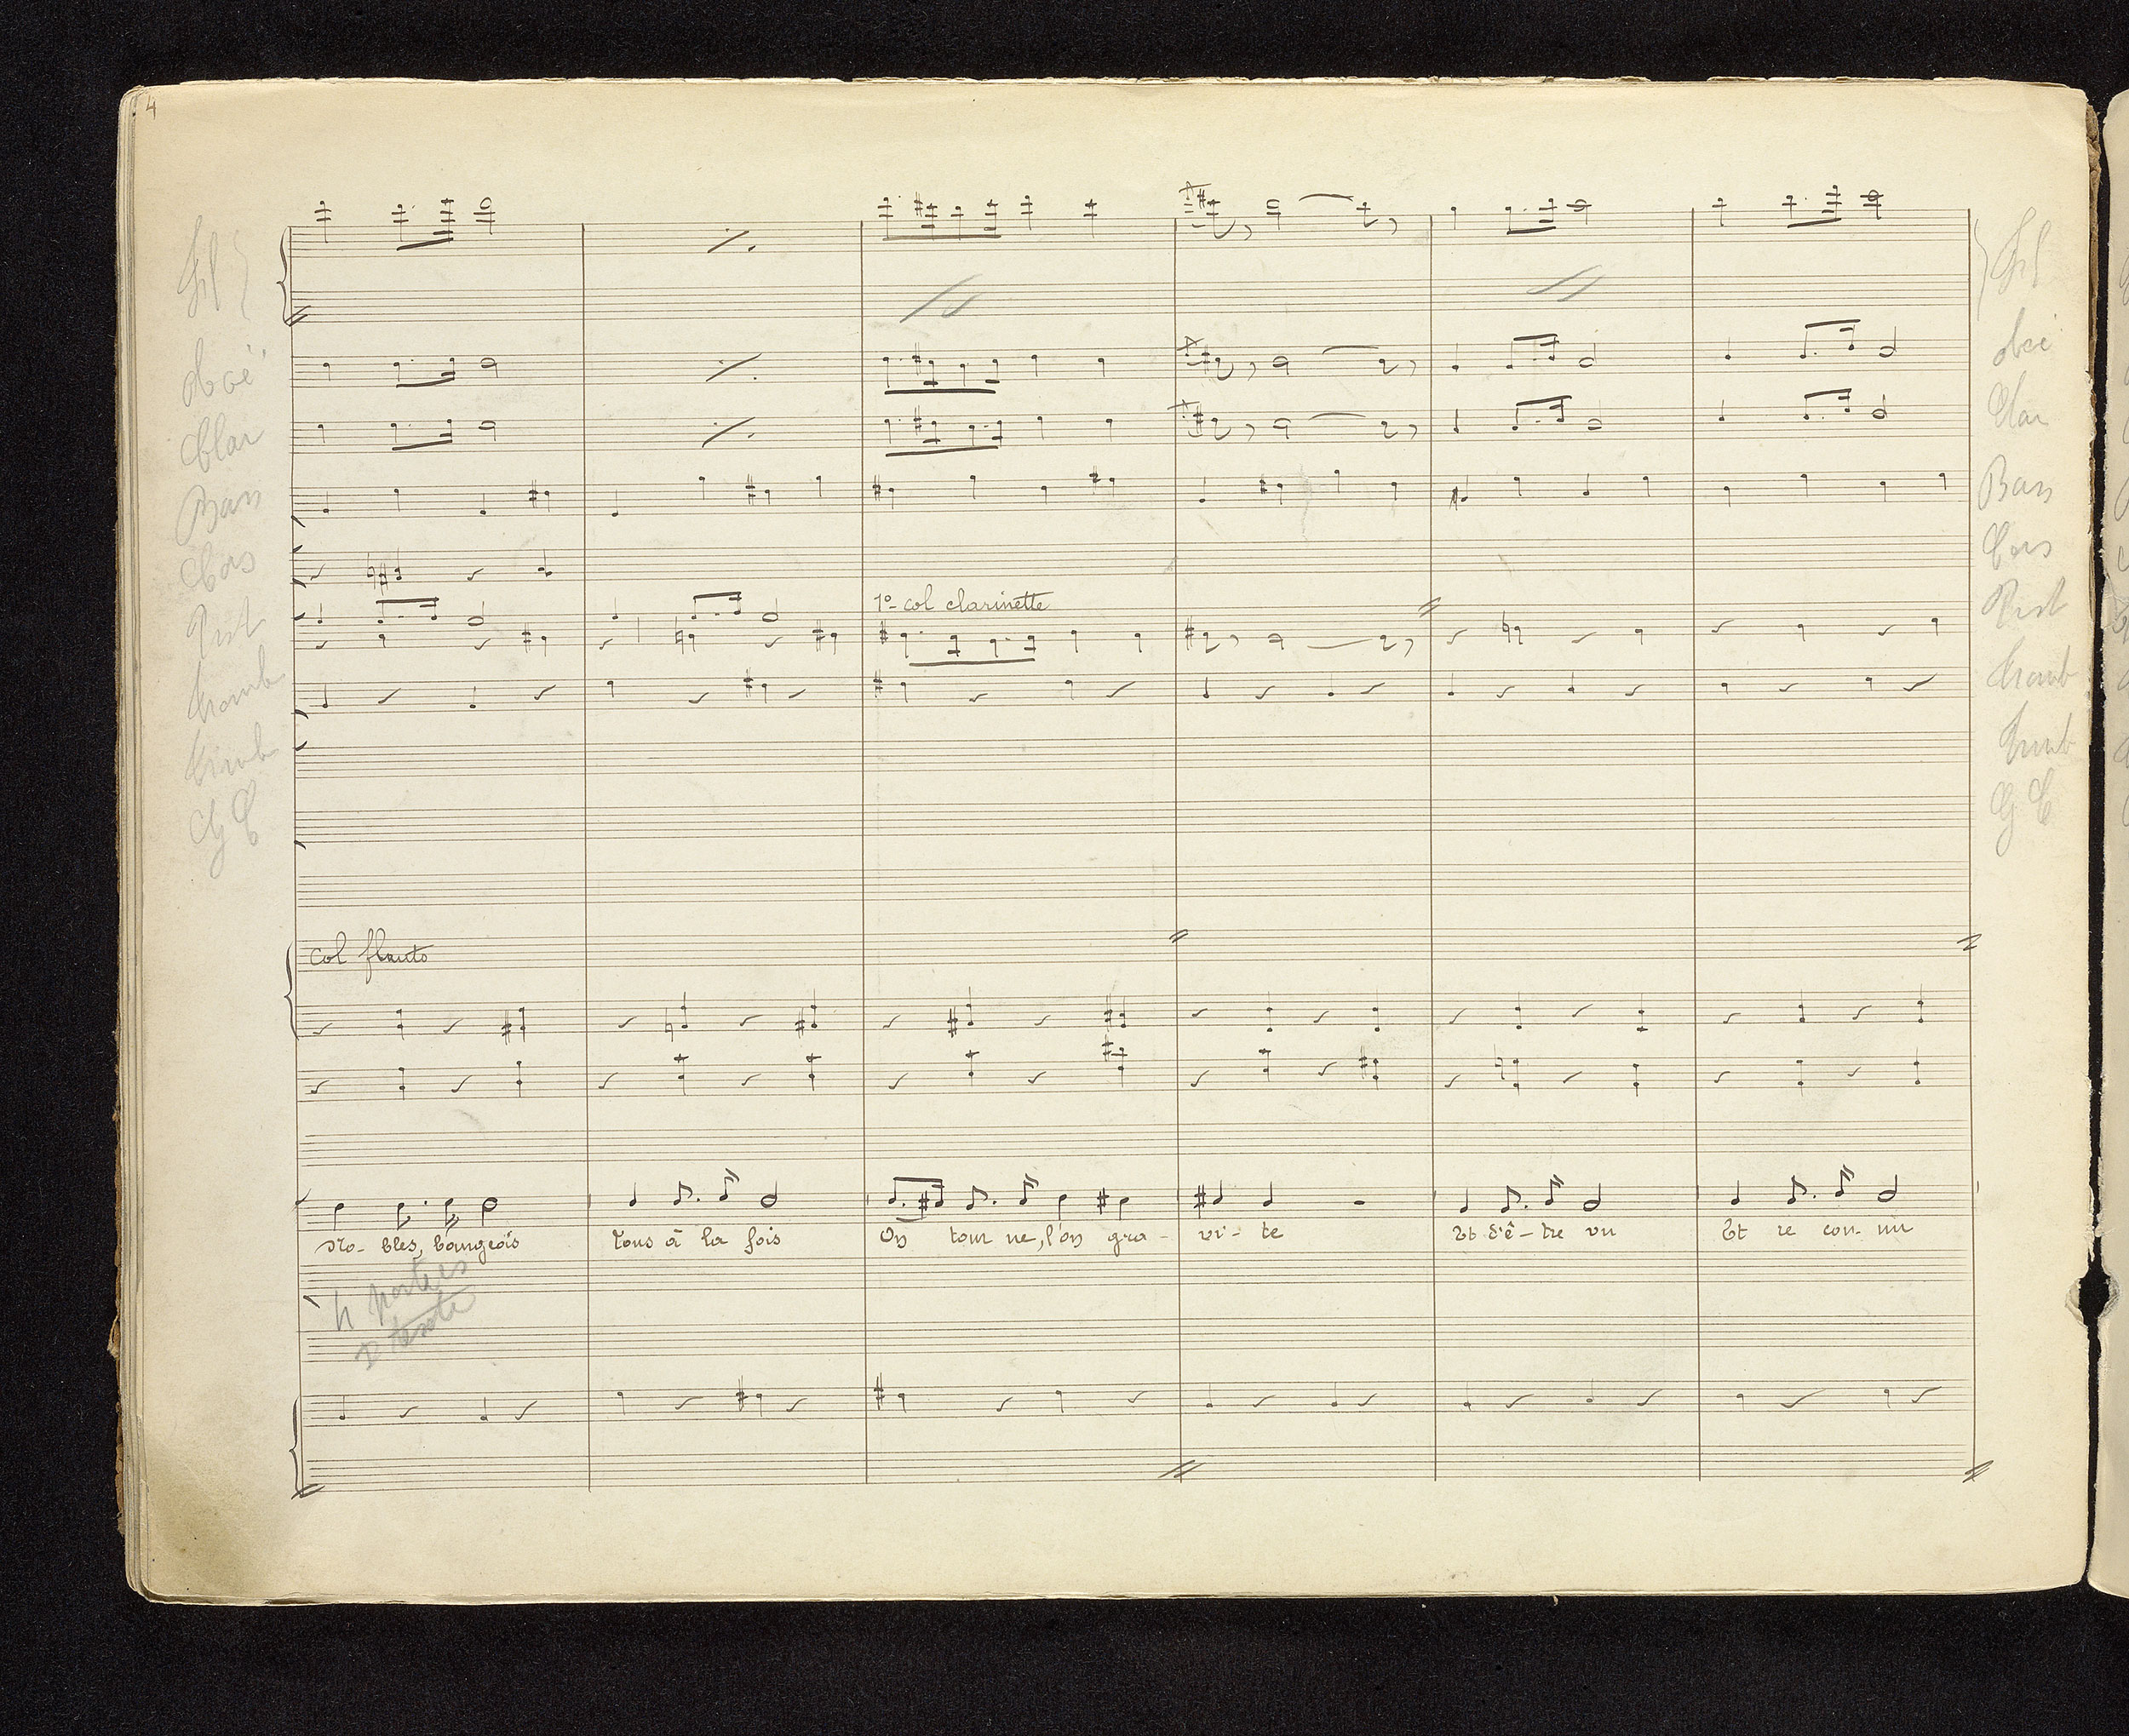 4
Fl Fl
oboé oboé
Clar Clar
Bass Bass
Cors Cors
1º col clarinette
Pist Pist
tromb tromb
timb timb
G C G C
col flauto
No- bles, bourgeois tous à la fois On tour ne, l'on gra- vi- te Et d'ê- tre vu Et re con- nu
4 portées